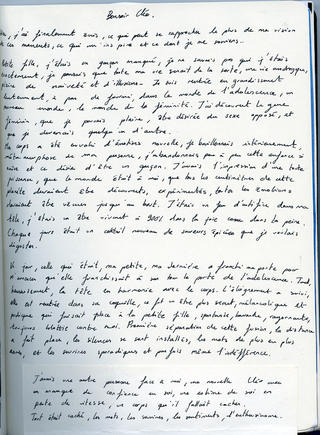 Bonsoir Cléo.
, j'ai finalement mis, ce qui peut se rapprocher le plus de ma vision
ces moments, ce qui m'ins pire et ce dont je me souviens.
petite fille, j'étais un garçon manqué, je ne savais pas qui j'étais
exactement, je pensais que toute ma vie serait de la sorte, une vie androgyne,
pleine de naïveté et d'illusions. Je suis rentrée en grandissant
lentement, à pas de fourmi, dans le monde de l'adolescence, un
nouveau monde, le monde de la féminité. J'ai découvert le genre
féminin, que je pouvais plaire, être désirée du sexe opposé, et
que je devenais quelqu'un d'autre.
corps a été envahi d'émotions nouvelles, je bouillonnais intérieurement,
métamorphose de ma personne, j'abandonnais peu à peu cette enfance
et ce désir d'être un garçon. J'avais l'impression d'une toute
puissance, que le monde était à moi, que tous les continents de cette
planète devraient être découverts, expérimentés, toutes les émotions
devaient être vécues jusqu'au bout. J'étais un feu d'artifice dans ma
tête, j'étais un être vivant à 300% dans la joie comme dans la peine.
Chaque jour était un cocktail nouveau de saveurs épicées que je voulais
déguster.
Un jour, celle qui était ma petite, ma dernière a franchi ma porte pour
m'annoncer qu'elle franchissait à son tour la porte de l'adolescence. Tout
la tête en harmonie avec le corps. L'éloignement a suivi,
elle est rentrée dans sa coquille, ce fut un être plus secret, mélancolique et
pudique qui faisait place à la petite fille, spontanée, bavarde,
toujours blottie contre moi. Première séparation de cette fusion, la distance
a fait place, les silences se sont installés, les mots de plus en plus
rares, et les sourires sporadiques et parfois même l'indifférence.
J'avais une autre personne face à moi, une nouvelle Cléo avec
un manque de confiance en soi, une estime de soi en
perte de vitesse, un corps qu'il fallait cacher.
Tout était caché, les mots, les sourires, les sentiments, l'enthousiasme.